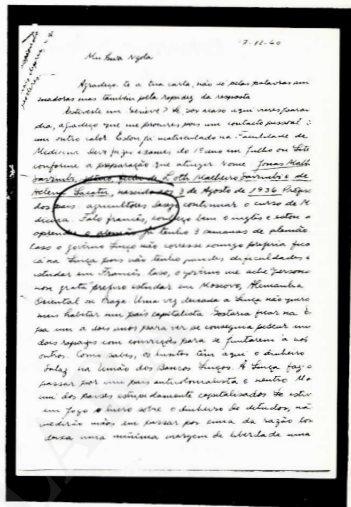 17-12-60
Meu Caro Ngola
Agradeço-te a tua carta, não só pelas palavras ani
madoras mas também pela rapidez da resposta
Estiveste em Genève? Se por acaso aqui vieres para
dia, agradeço que me procures, pois um contacto pessoal é
um outro valor. Estou já matriculado na Faculdade de
Medicina. Devo fazer exames do 1º ano em Julho ou
conforme a preparação que atingir. Nome Jonas Malh
Savimbi, filho de Loth Malheiro Savimbi e de
Helena nascendo a 3 de Agosto de 1936.
dos pais agricultores. Desejo continuar o curso de M
dicina. Falo francês, conheço bem o inglês e estou a
aprender o alemão. Já tenho 3 semanas de alemão
Caso o govêrno suíço não corresse comigo preferia fica
cá na Suíça pois não tenho dificuldades a
estudar em Francês. Caso o govêrno me ache "persona
non grata" prefiro estudar em Moscovo, Alemanha
Oriental ou Praga. Uma vez deixada a Suíça não quero
mais habitar um país capitalista. Gostaria ficar na E
pa um a dois anos para ver se conseguia pescar uns
dois rapazes com convicções para se juntarem a nós
outros. Como sabes, os têm aqui o dinheiro
na União dos Bancos Suíços. A Suíça faz-se
passar por um país anticolonialista e neutro. Ma
um dos países estupidamente capitalisados. Se estiv
em jogo o lucro sobre o dinheiro de detidos, nã
medirão meios em passar por cima da razão
deixa uma mínima margem de liberdade uma